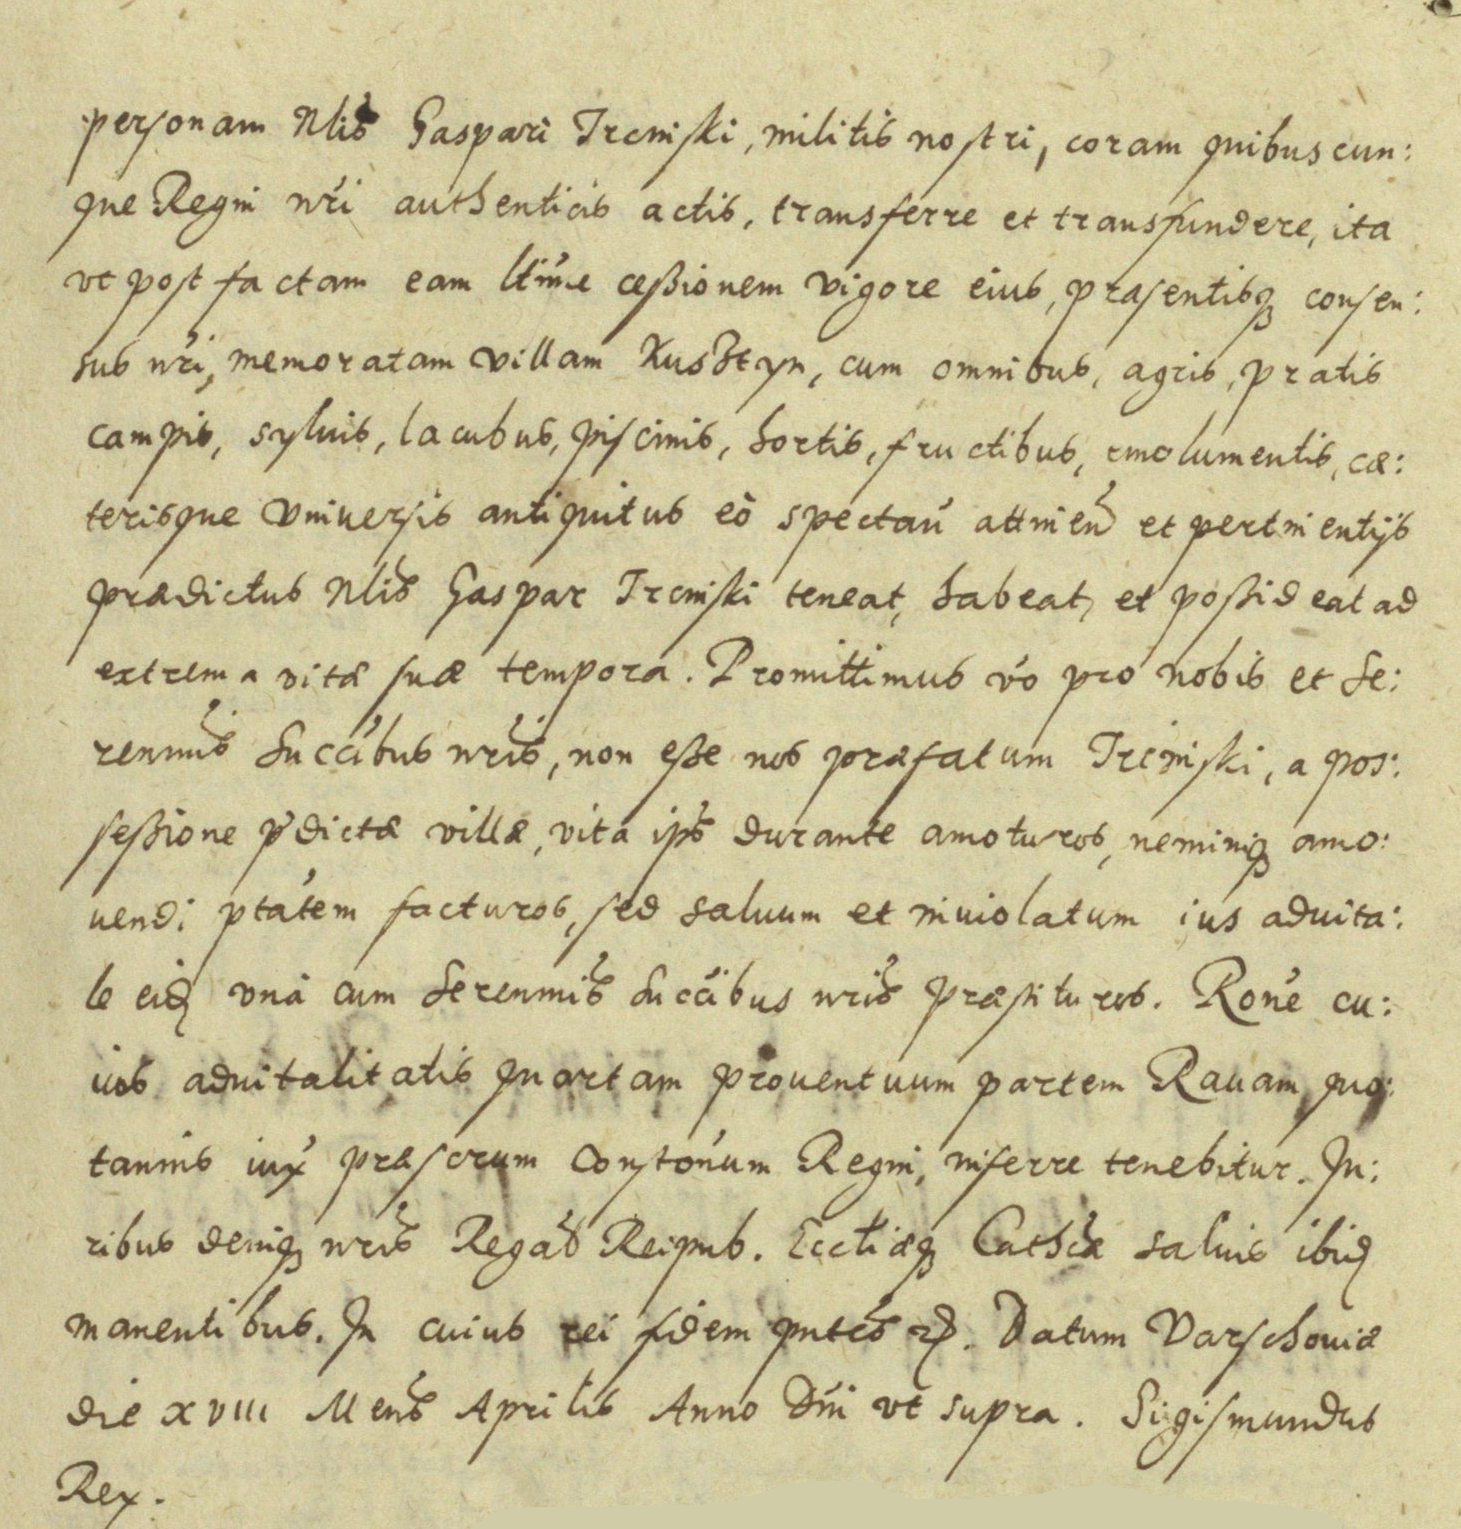 personam Nlis Gaspari Trcinski, militis nostri, coram quibuscun:
que Regni nri authenticis actis, transferre et transfundere, ita
vt post factam eam ltime cessionem vigore eius, præsentisq consen:
sus nri, memoratam villam Kusztyn, cum omnibus, agris, pratis
campis, syluis, lacubus, piscinis, hortis, fructibus, emolumentis, cæ:
terisque vniuersis antiquitus eò spectañ attineñ et pertinentijs
prædictus Nlis Gaspar Trcinski teneat, habeat, et possideat ad
extrema vitæ suæ tempora. Promittimus vo pro nobis et Se:
renmis Succibus nris, non esse nos præfatum Trcinski, a pos:
sessione pdictæ villæ, vita ips durante amoturos, neminiq amo:
uendi ptatem facturos, sed saluum et inuiolatum ius aduita:
le eid vnà cum Serenmis Succibus nris præstituros. Rone cu:
ius aduitalitatis quartam prouentuum partem Rauam, quo:
tannis iux præscrum Constonum Regni, inferre tenebitur. Iu:
ribus deniq nris Regal Reipub. Eccliæq Cathcæ saluis ibid
manentibus. In cuius rei fidem pntes etc. Datum Varschouiæ
die XVIII Mens Aprilis Anno Dni vt supra. Sigismundus
Rex.